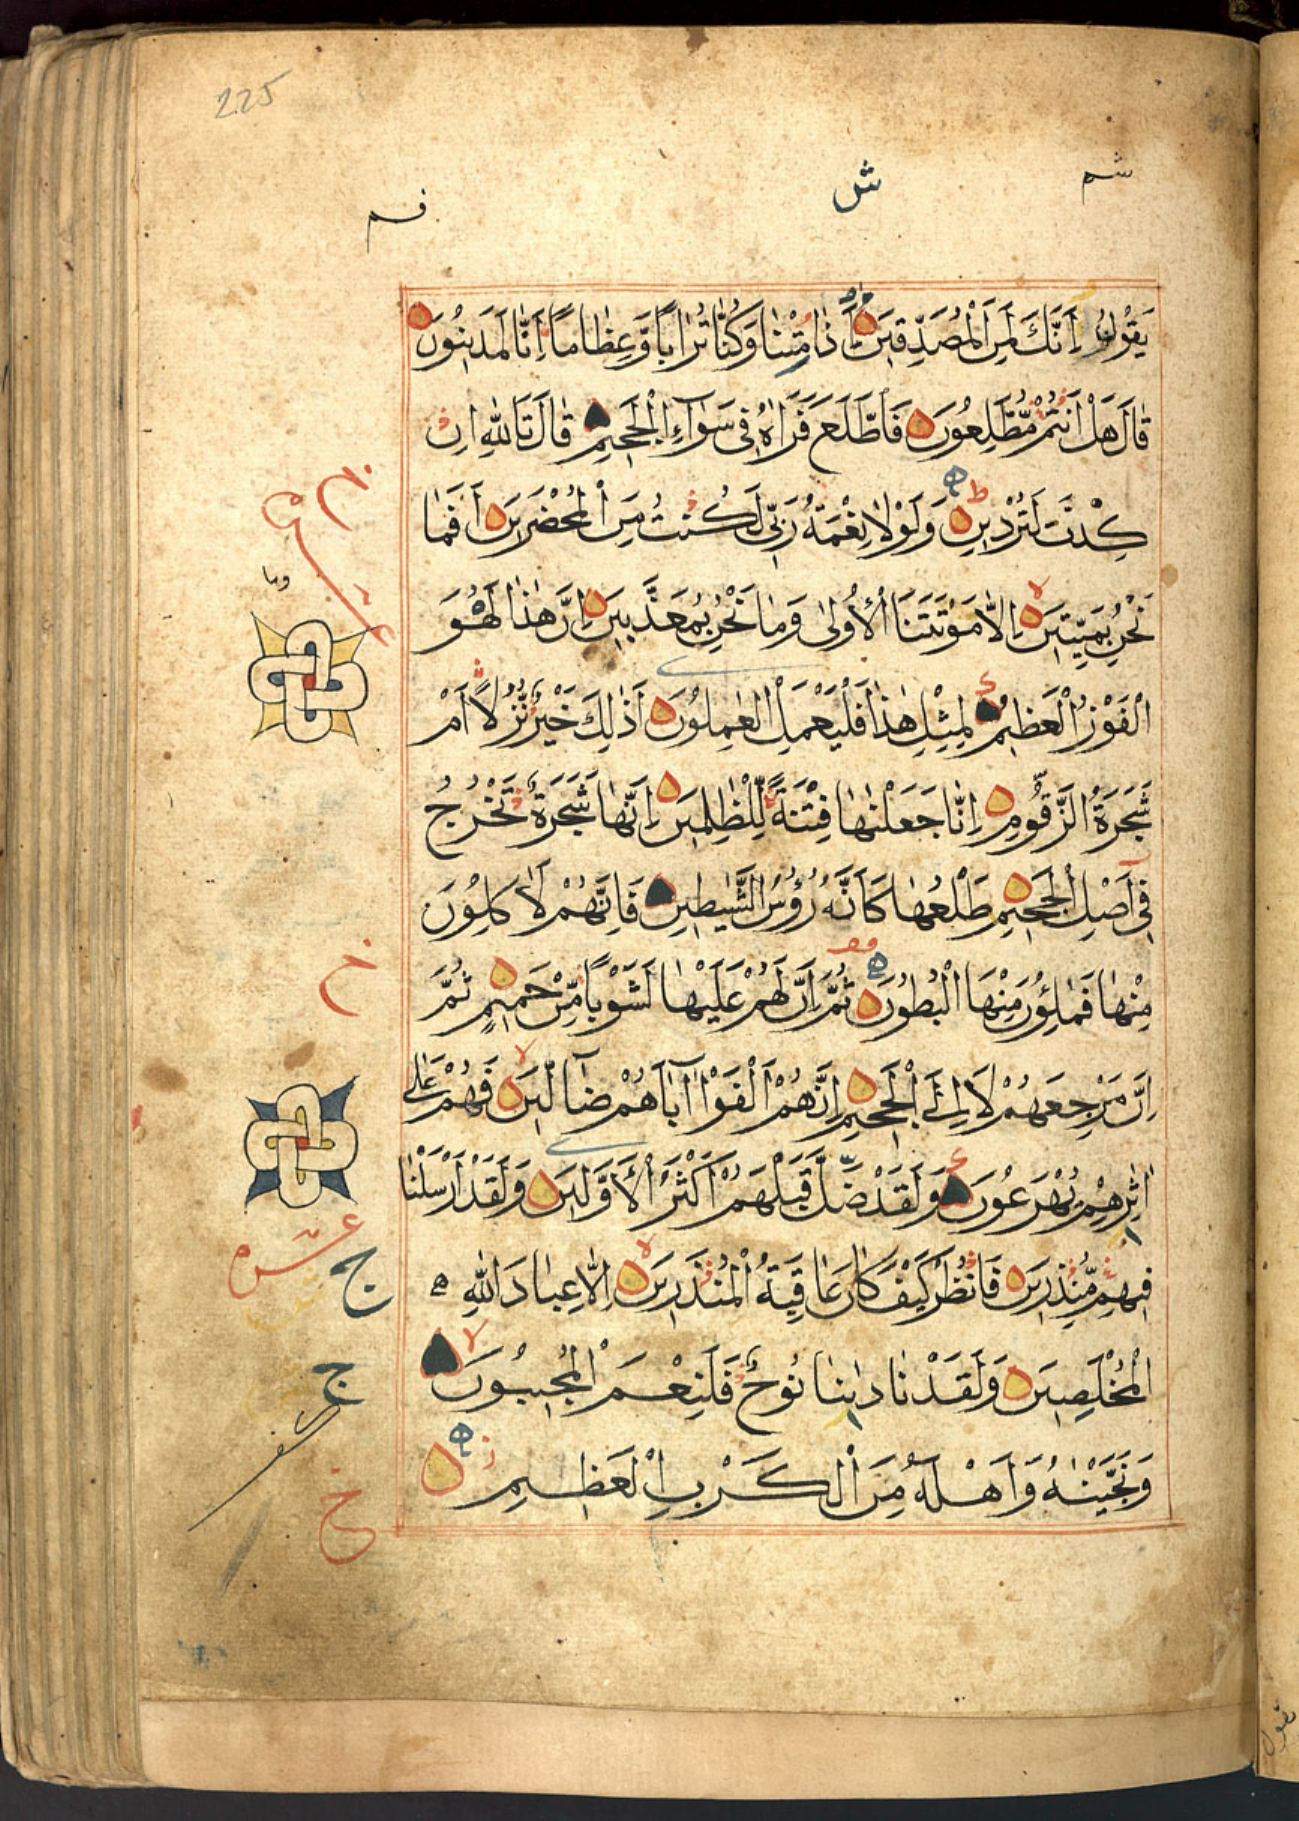 225
شم
ش
ڡم
يَقُولُ اَئِنَّكَ لَمِنَ الْمُصَدِّقِينَ ءَاِذَا مِتْنَا وَكُنَّا تُرَابًا وَعِظَامًا اَئِنَّا لَمَدِينُونَ
قَالَ هَلْ اَنْتُمْ مُطَّلِعُونَ فَاطَّلَعَ فَرَاٰهُ فِى سَوَآءِ الْجَحِيمِ قَالَ تَاللّٰهِ اِنْ
كِدْتَ لَتُرْدِينِ وَلَوْلَا نِعْمَةُ رَبِّى لَكُنْتُ مِنَ الْمُحْضَرِينَ اَفَمَا
نَحْنُ بِمَيِّتِينَ اِلَّا مَوْتَتَنَا الْاُولٰى وَمَا نَحْنُ بِمُعَذَّبِينَ اِنَّ هٰذَا لَهُوَ
الْفَوْزُ الْعَظِيمُ لِمِثْلِ هٰذَا فَلْيَعْمَلِ الْعٰمِلُونَ اَذٰلِكَ خَيْرٌ نُزُلًا اَمْ
شَجَرَةُ الزَّقُّومِ اِنَّا جَعَلْنٰهَا فِتْنَةً لِلظّٰلِمِينَ اِنَّهَا شَجَرَةٌ تَخْرُجُ
فِى اَصْلِ الْجَحِيمِ طَلْعُهَا كَاَنَّهُ رُؤُسُ الشَّيٰطِينِ فَاِنَّهُمْ لَاٰكِلُونَ
مِنْهَا فَمَالِئُونَ مِنْهَا الْبُطُونَ ثُمَّ اِنَّ لَهُمْ عَلَيْهَا لَشَوْبًا مِنْ حَمِيمٍ ثُمَّ
اِنَّ مَرْجِعَهُمْ لَاِلَى الْجَحِيمِ اِنَّهُمْ اَلْفَوْا اٰبَآءَهُمْ ضَآلِّينَ فَهُمْ عَلٰى
اٰثٰرِهِمْ يُهْرَعُونَ وَلَقَدْ ضَلَّ قَبْلَهُمْ اَكْثَرُ الْاَوَّلِينَ وَلَقَدْ اَرْسَلْنَا
فِيهِمْ مُنْذِرِينَ فَانْظُرْ كَيْفَ كَانَ عَاقِبَةُ الْمُنْذَرِينَ اِلَّا عِبَادَ اللّٰهِ
الْمُخْلَصِينَ وَلَقَدْ نَادٰينَا نُوحٌ فَلَنِعْمَ الْمُجِيبُونَ
وَنَجَّيْنٰهُ وَاَهْلَهُ مِنَ الْكَرْبِ الْعَظِيمِ